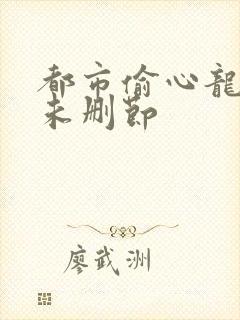 都市偷心龍
未删節
廖武洲